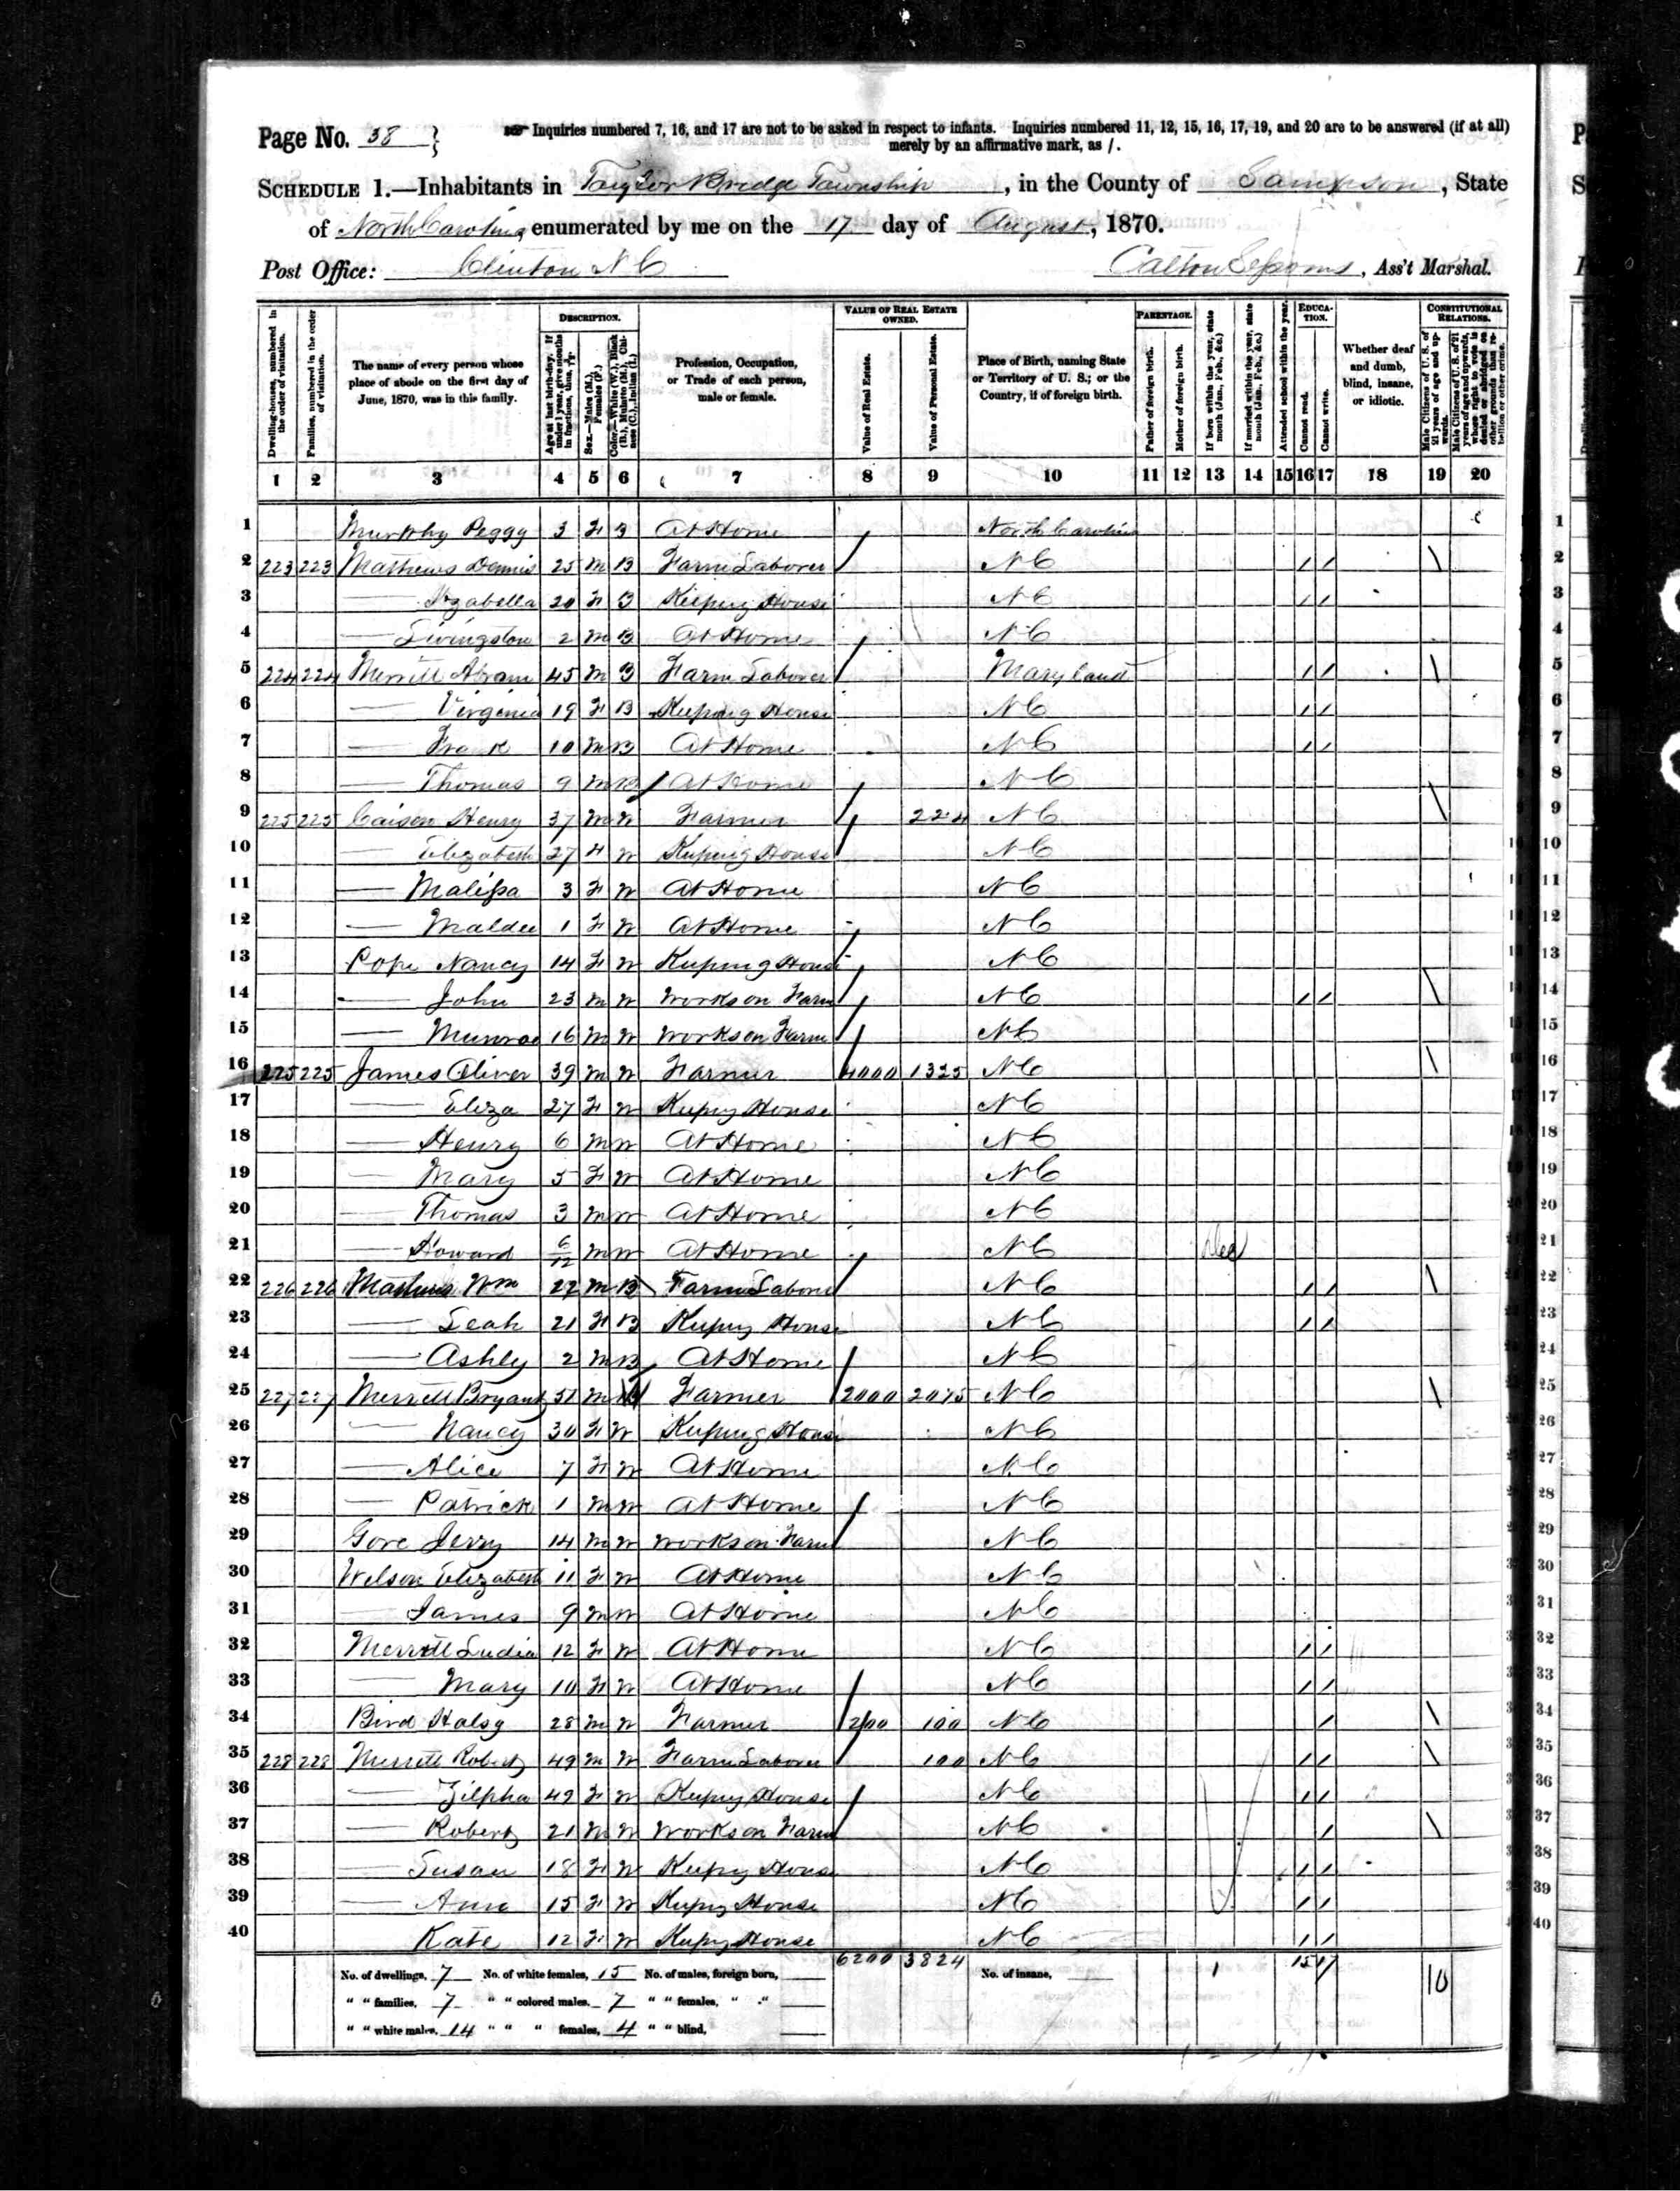 Page No. 38 }
Inquiries numbered 7, 16, and 17 are not to be asked in respect to infants. Inquiries numbered 11, 12, 15, 16, 17, 19, and 20 are to be answered (if at all)
merely by an affirmative mark, as /.
SCHEDULE 1.—Inhabitants in Taylor Bridge Township, in the County of Sampson, State
of North Carolina, enumerated by me on the 17 day of August, 1870.
Post Office: Clinton N C
Calton Sessoms, Ass't Marshal.
Dwelling-houses, numbered in the order of visitation.
Families, numbered in the order of visitation.
The name of every person whose place of abode on the first day of June, 1870, was in this family.
DESCRIPTION.
Age at last birth-day. If under 1 year, give months in fractions, thus, 3/12
Sex.—Males (M.), Females (F.)
Color.—White (W.), Black (B.), Mulatto (M.), Chinese (C.), Indian (I.)
Profession, Occupation, or Trade of each person, male or female.
VALUE OF REAL ESTATE OWNED.
Value of Real Estate.
Value of Personal Estate.
Place of Birth, naming State or Territory of U. S.; or the Country, if of foreign birth.
PARENTAGE.
Father of foreign birth.
Mother of foreign birth.
If born within the year, state month (Jan., Feb., &c.)
If married within the year, state month (Jan., Feb., &c.)
Attended school within the year.
EDUCATION.
Cannot read.
Cannot write.
Whether deaf and dumb, blind, insane, or idiotic.
CONSTITUTIONAL RELATIONS.
Male Citizens of U. S. of 21 years of age and upwards.
Male Citizens of U. S. of 21 years of age and upwards, whose right to vote is denied or abridged on other grounds than rebellion or other crime.
1 2 3 4 5 6 7 8 9 10 11 12 13 14 15 16 17 18 19 20
1 Murphy Peggy 3 F B At Home North Carolina
2 223 223 Mathews Dennis 25 M B Farm Laborer N C / / \
3 — Izabella 20 F B Keeping House N C / /
4 — Livingston 2 M B At Home N C
5 224 224 Merrill Abram 45 M B Farm Laborer Maryland / / \
6 — Virginia 19 F B Keeping House N C / /
7 — Frank 10 M B At Home N C / /
8 — Thomas 9 M B At Home N C
9 225 225 Caison Henry 37 M W Farmer 224 N C \
10 — Elizabeth 27 F W Keeping House N C
11 — Malissa 3 F W At Home N C
12 — 1 F W At Home N C
13 Pope Nancy 14 F W Keeping House N C
14 — John 23 M W Works on Farm N C / / \
15 — Munroe 16 M W Works on Farm N C
16 225 225 James Oliver 39 M W Farmer 4000 1325 N C \
17 — Eliza 27 F W Keepng House N C
18 — Henry 6 M W At Home N C
19 — Mary 5 F W At Home N C
20 — Thomas 3 M W At Home N C
21 — Howard 6/12 M W At Home N C Dec
22 226 226 Mathews Wm 27 M B Farm Laborer N C / / \
23 — Leah 21 F B Keepng House N C / /
24 — Ashley 2 M B At Home N C
25 227 227 Merrell Bryant 51 M W Farmer 2000 2075 N C \
26 — Nancy 30 F W Keeping House N C
27 — Alice 7 F W At Home N C
28 — Patrick 1 M W At Home N C
29 Gore Jerry 14 M W Works on Farm N C
30 Wilson Elizabeth 11 F W At Home N C
31 — James 9 M W At Home N C
32 Merrill Ludia 12 F W At Home N C / /
33 — Mary 10 F W At Home N C / /
34 Bird 28 M W Farmer 200 100 N C / \
35 228 228 Merrett Robert 49 M W Farm Laborer 100 N C / / \
36 — Zilpha 49 F W Keepng House N C / /
37 — Robert 21 M W Works on Farm N C / \
38 — Susan 18 F W Keepng House N C / /
39 — Ann 15 F W Keepng House N C / /
40 Kate 12 F W Keepng House N C / /
6200 3824 1 15 17 10
No. of dwellings, 7 No. of white females, 15 No. of males, foreign born, No. of insane,
" " families, 7 " " colored males, 7 " " females, " "
" " white males, 14 " " " females, 4 " " blind,